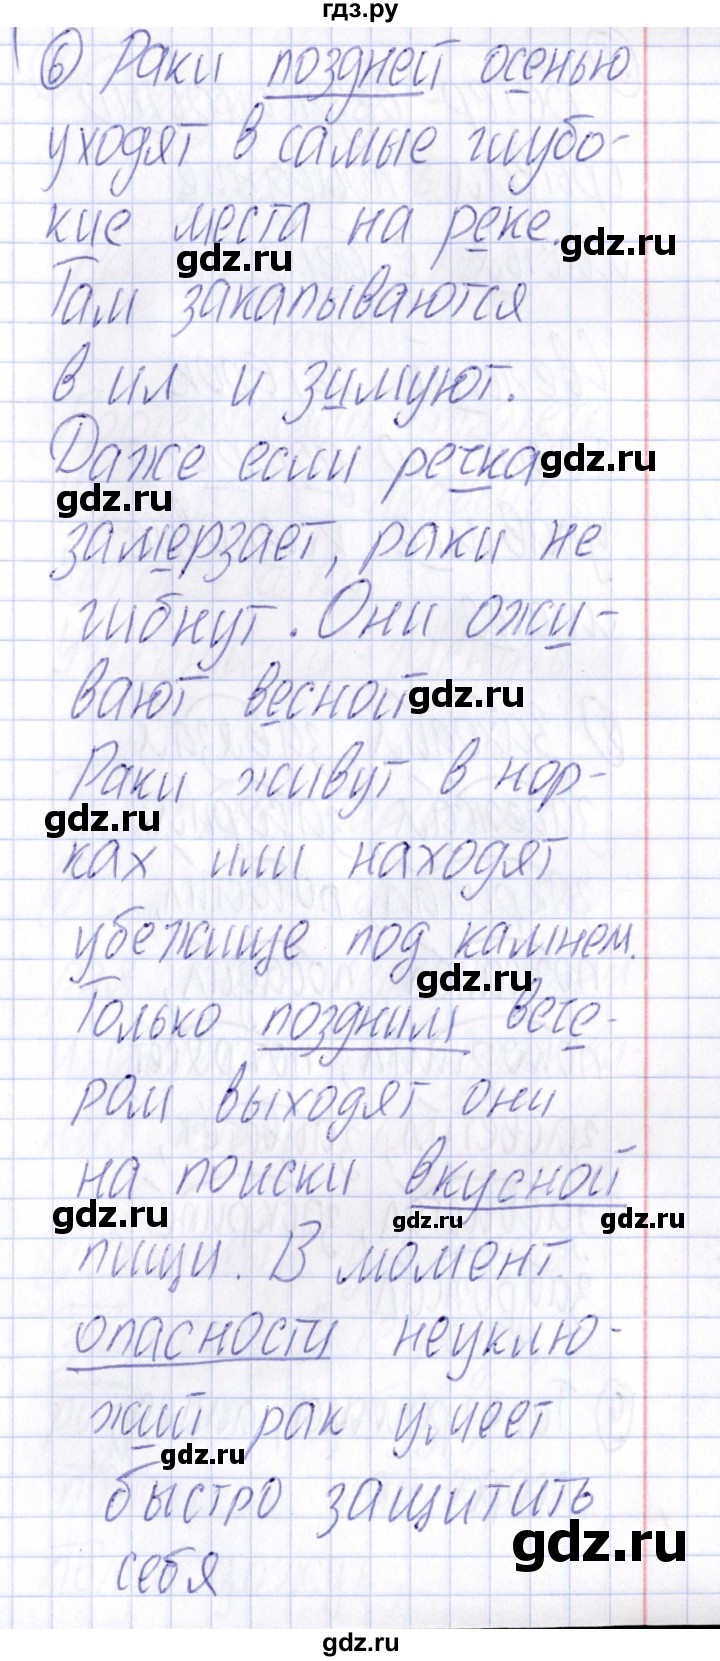 гдз.ру
⑥ Раки поздней осенью
уходят в самые глубо-
кие места на реке.
gdz.ru
gdz.ru
Там закапываются
в ил и зимуют.
Даже если речка
gdz.ru
gdz.ru
замерзает, раки не
гибнут. Они ожи-
вают весной
gdz.ru
Раки живут в нор-
gdz.ru
ках или находят
убежище под камнем.
gdz.ru
Только поздним вече-
ром выходят они
на поиски вкусной
gdz.ru
gdz.ru
gdz.ru
пищи. В момент
опасности неуклю-
жий рак умеет
gdz.ru
быстро защитить
gdz.ru
себя
gdz.ru